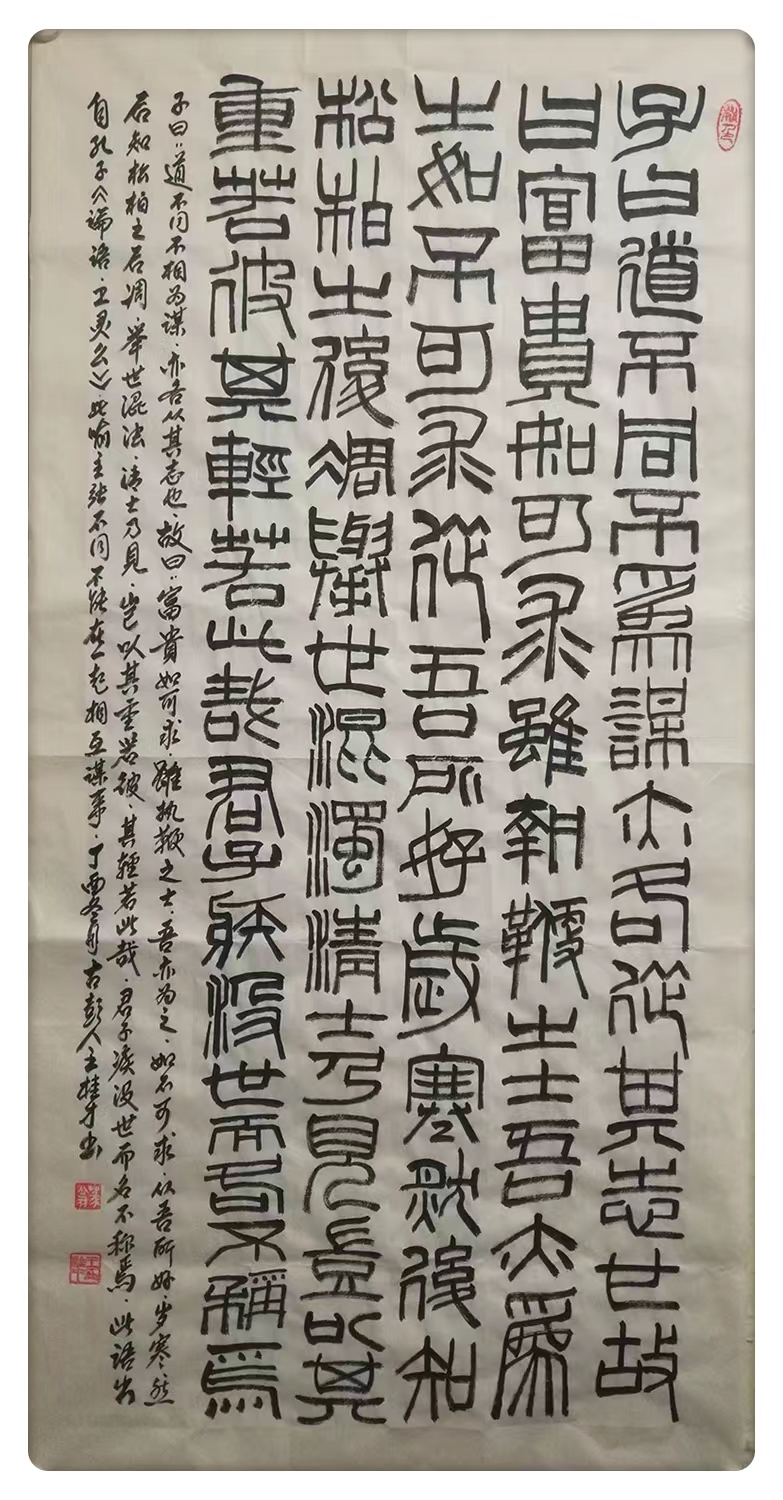 子曰道不同不為謀亦各從其志也故
曰富貴如可求雖執鞭之士吾亦為
之如不可求從吾所好歲寒然後知
松柏之後凋舉世混濁清士乃見豈以其
重若彼其輕若此哉君子疾沒世而名不稱焉
子曰:"道不同不相为谋,亦各从其志也,故曰:"富貴如可求,雖执鞭之士,吾亦为之,如不可求,从吾所好,岁寒,然
后知松柏之后凋,举世混浊,清士乃見,岂以其重若彼,其轻若此哉,君子疾没世而名不称焉,此语出
自孔子《论语·卫灵公》,比喻主张不同,不能在一起相互谋事,丁酉冬月古彭人王桂才书